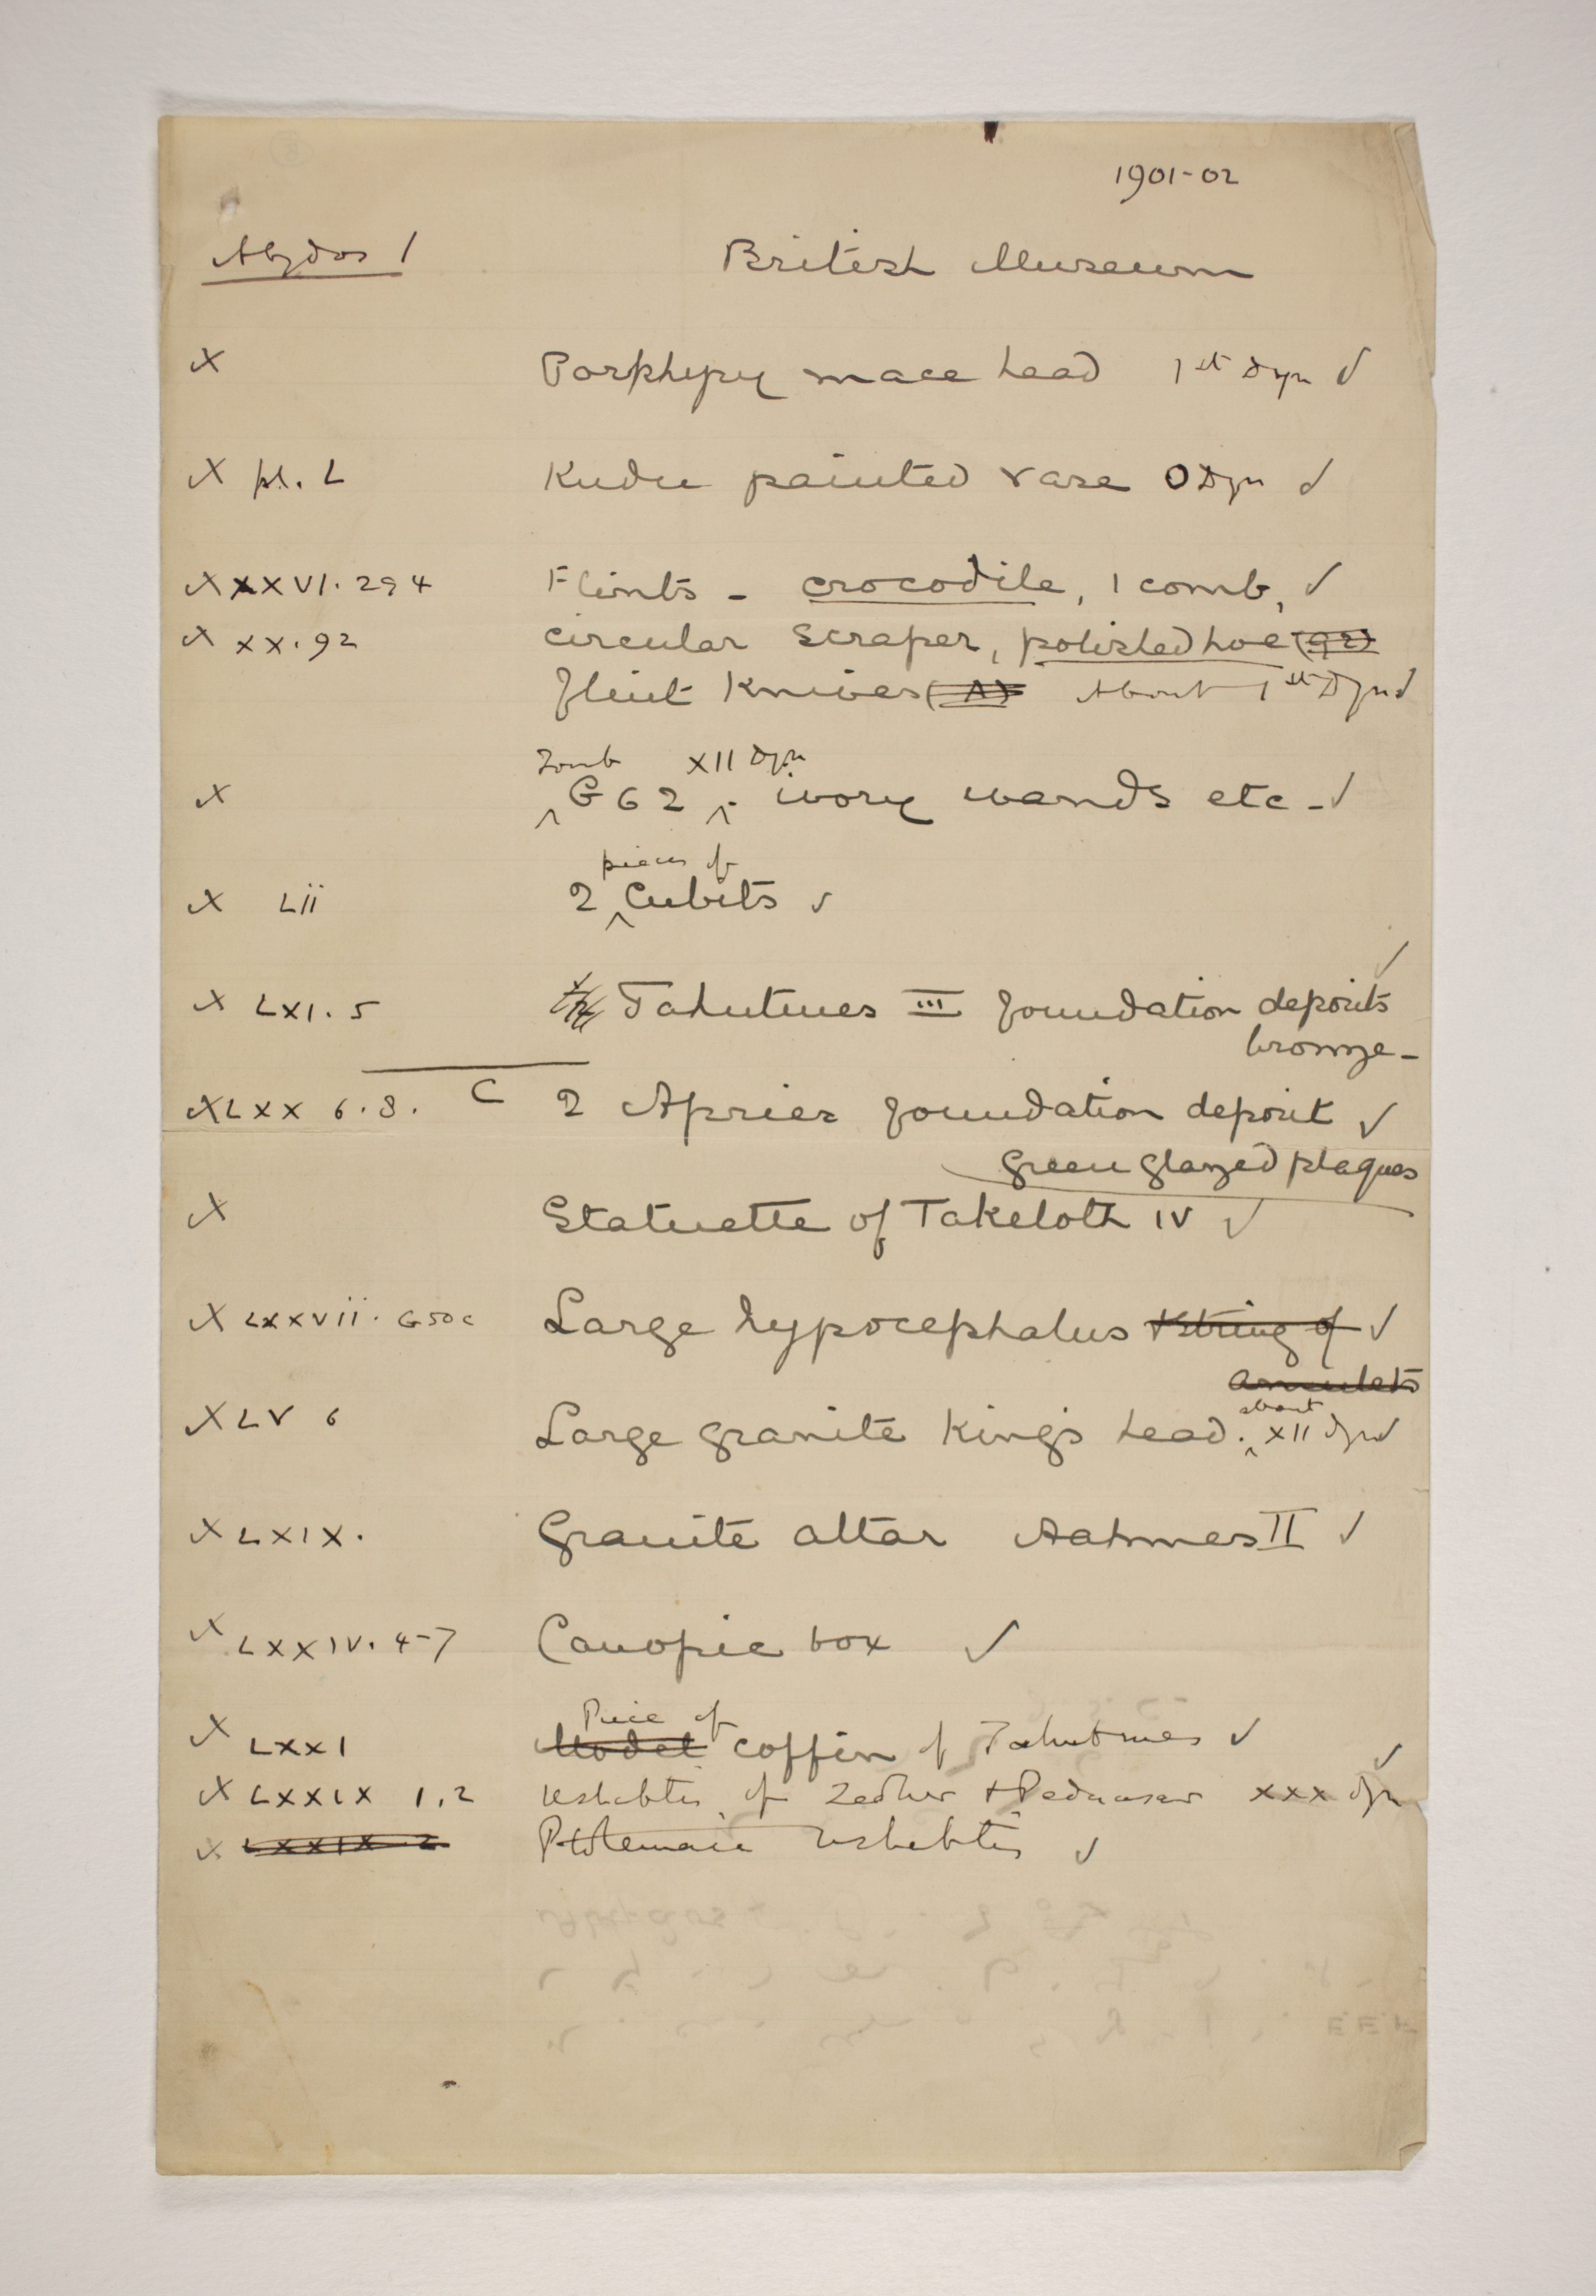 1901-02
Abydos 1 British Museum
X Porphyry mace head 1st Dyn ✓
X pl. L Kudu painted vase 0 Dyn ✓
X XXVI. 294 Flints - crocodile, 1 comb, ✓
X XX. 92 circular scraper, polished hoe (92)
flint Knives (A) About 1st Dyn ✓
Tomb XII Dyn
X G 62 - ivory wands etc - ✓
pieces of
X Lii 2 Cubits ✓
✓
X LXI. 5 Tahutmes III foundation deposits
bronze -
X LXX 6.8. C 2 Apries foundation deposit ✓
Green glazed plaques
X Statuette of Takeloth IV ✓
X LXXVii. G50c Large hypocephalus & string of ✓
amulets
about
X LV 6 Large granite King's head. XII dyn ✓
X LXIX. Granite altar Aahmes II ✓
X LXXIV. 4-7 Canopic box ✓
Piece of
X LXXI Model coffin of Tahutmes ✓
X LXXIX 1,2 Ushabtis of Zedher & Peduasar XXX dyn ✓
X LXXIX 2 Ptolemaic ushabtis ✓